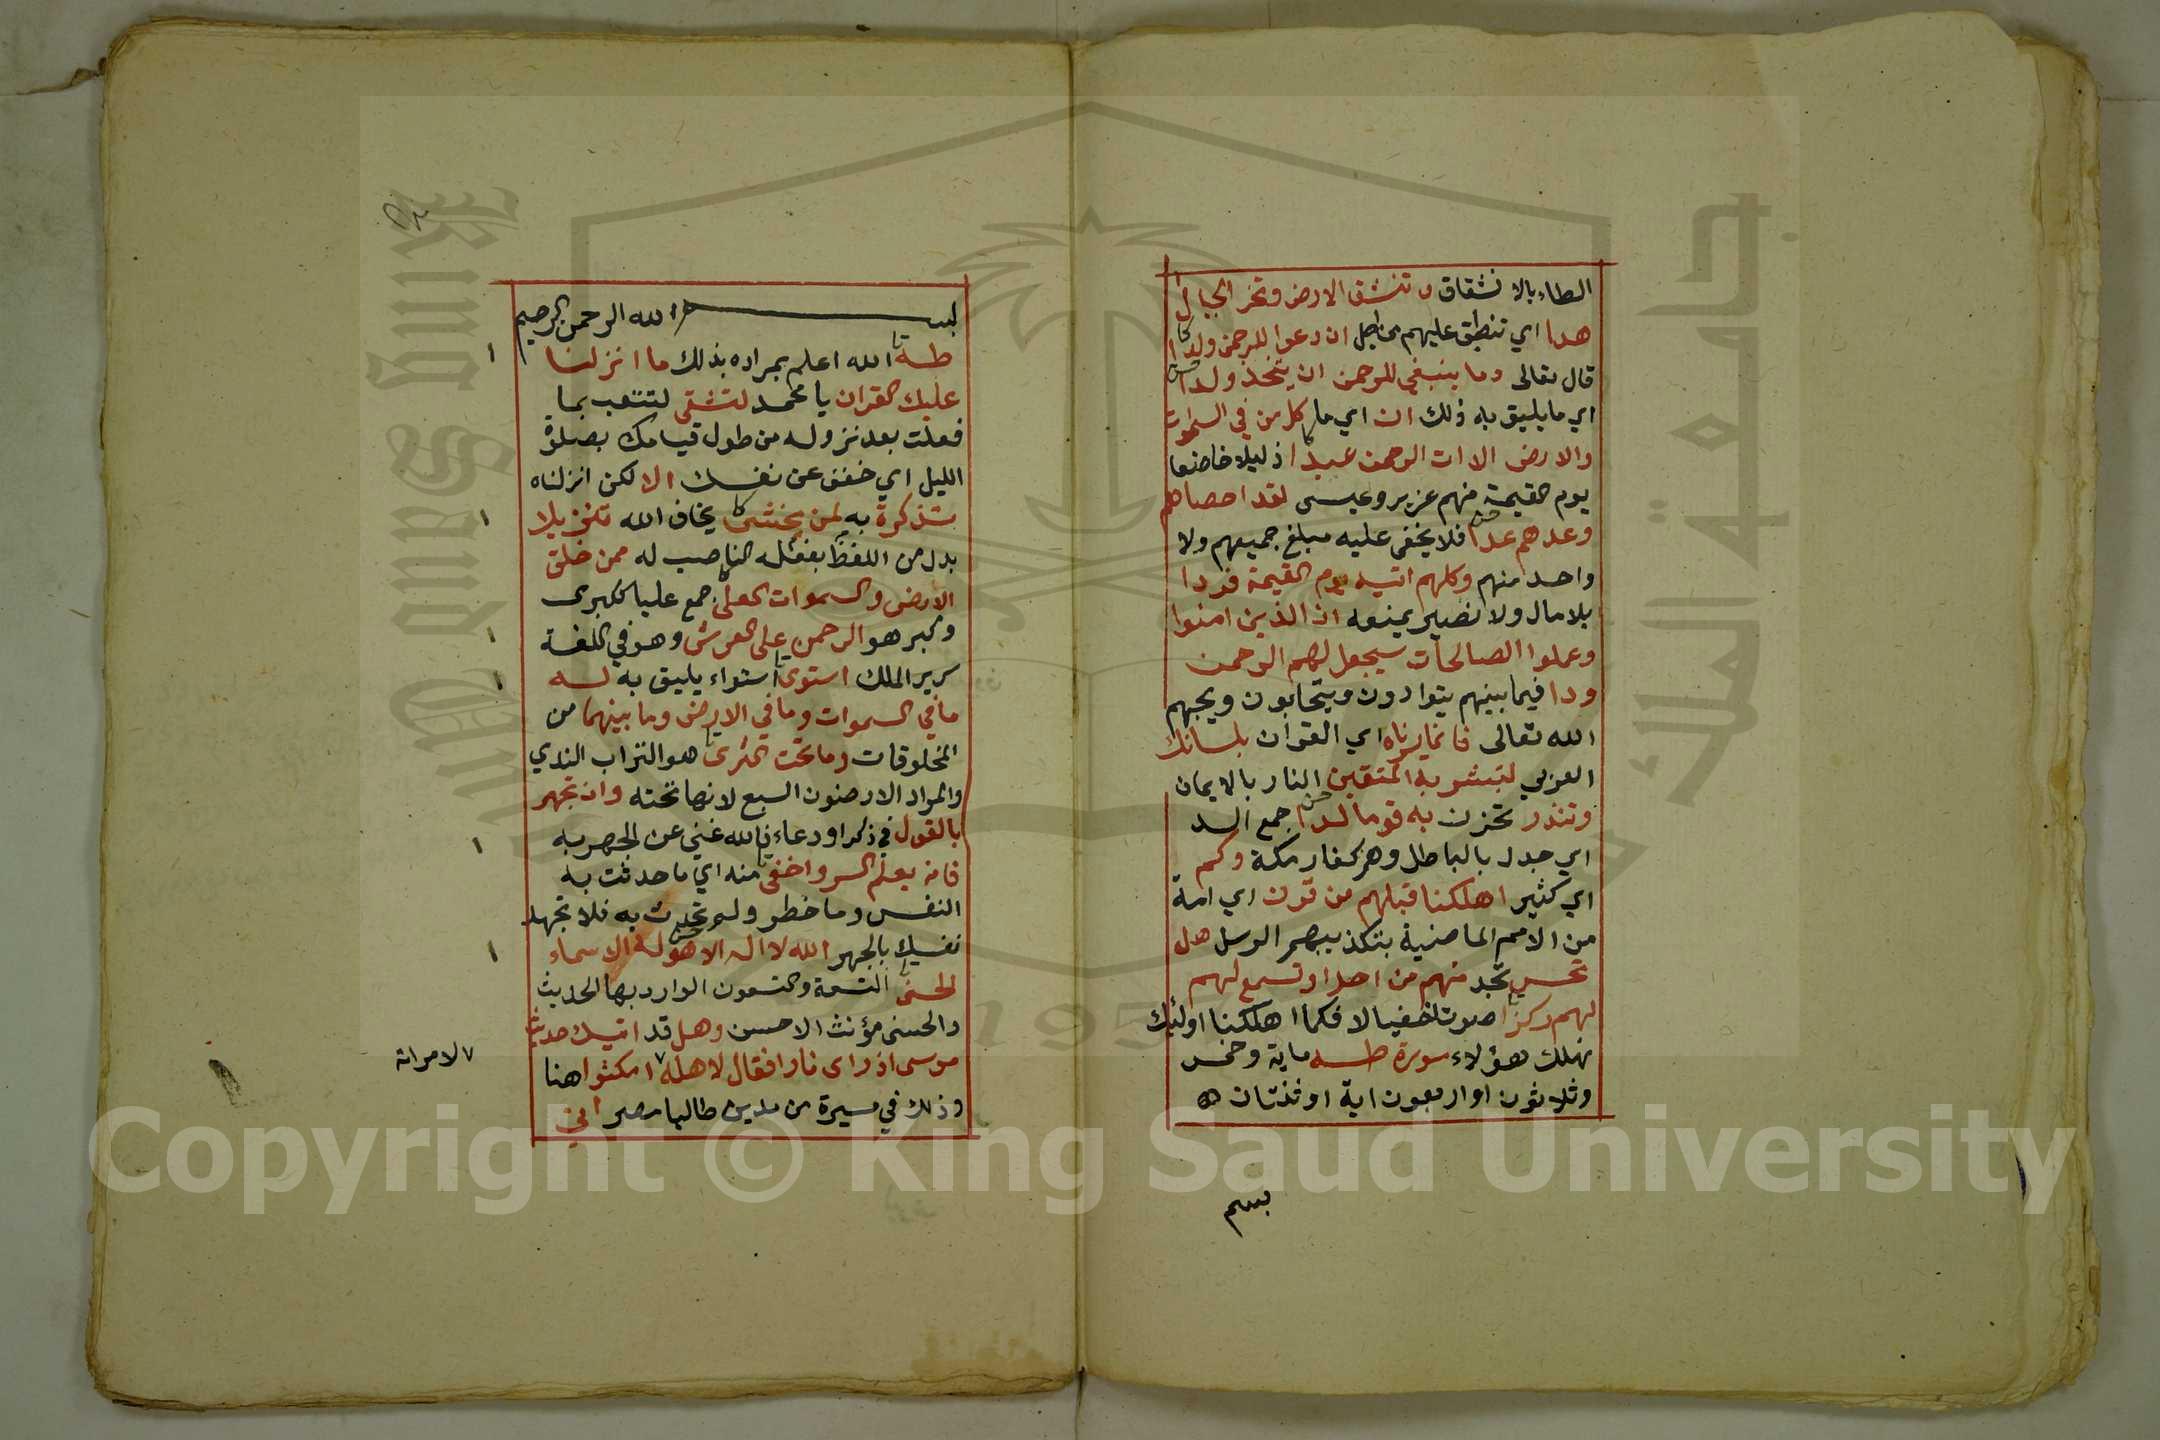 الطاء بالانشقاق وتنشق الارض وتخر الجبال
هدا اي تنطبق عليهم من اجل ان دعوا للرحمن ولدا
قال تعالى وما ينبغي للرحمن ان يتخذ ولدا
اي ما يليق به ذلك ان اي ما كل من في السموات
والارض الا ات الرحمن عبدا ذليلا خاضعا
يوم القيمة منهم عزير وعيسى لقد احصاهم
وعدهم عدا فلا يخفى عليه مبلغ جميعهم ولا
واحد منهم وكلهم اتيه يوم القيمة فردا
بلا مال ولا نصير يمنعه ان الذين امنوا
وعملوا الصالحات سيجعل لهم الرحمن
ودا فيما بينهم يتوادون ويتحابون ويحبهم
الله تعالى فانما يسرناه اي القران بلسانك
العربي لتبشر به المتقين النار بالايمان
وتنذر تخزن به قوما لدا جمع الد
اي جدل بالباطل وهم كفار مكة وكم
اي كثير اهلكنا قبلهم من قرن اي امة
من الامم الماضية بتكذيبهم الرسل هل
تحس تجد منهم من احد او تسمع لهم
لهم ركزا صوتا خفيا لا فكما اهلكنا اولئك
نهلك هؤلاء سورة طه ماية وخمس
وثلاثون او اربعون اية او ثنتان
بسم
بسم الله الرحمن الرحيم
طه الله اعلم بمراده بذلك ما انزلنا
عليك القران يا محمد لتشقى لتتعب بما
فعلت بعد نزوله من طول قيامك بصلوة
الليل اي خفف عن نفسك الا لكن انزلناه
تذكرة به لمن يخشى يخاف الله تنزيلا
بدل من اللفظ بفعله الناصب له ممن خلق
الارض والسموات العلى جمع عليا ككبرى
وكبر هو الرحمن على العرش وهو في اللغة
سرير الملك استوى استواء يليق به له
ما في السموات وما في الارض وما بينهما من
المخلوقات وما تحت الثرى هو التراب الندي
والمراد الارضون السبع لانها تحته وان تجهر
بالقول في ذكر او دعاء فالله غني عن الجهر به
فانه يعلم السر واخفى منه اي ما حدثت به
النفس وما خطر ولم تحدث به فلا تجهد
نفسك بالجهر الله لا اله الا هو له الاسماء
الحسنى التسعة والتسعون الوارد بها الحديث
والحسنى مؤنث الاحسن وهل قد اتيك حديث
موسى اذ راى نارا فقال لاهله امكثوا هنا
وذلك في مسيرة من مدين طالبا مصر اني
لامراته